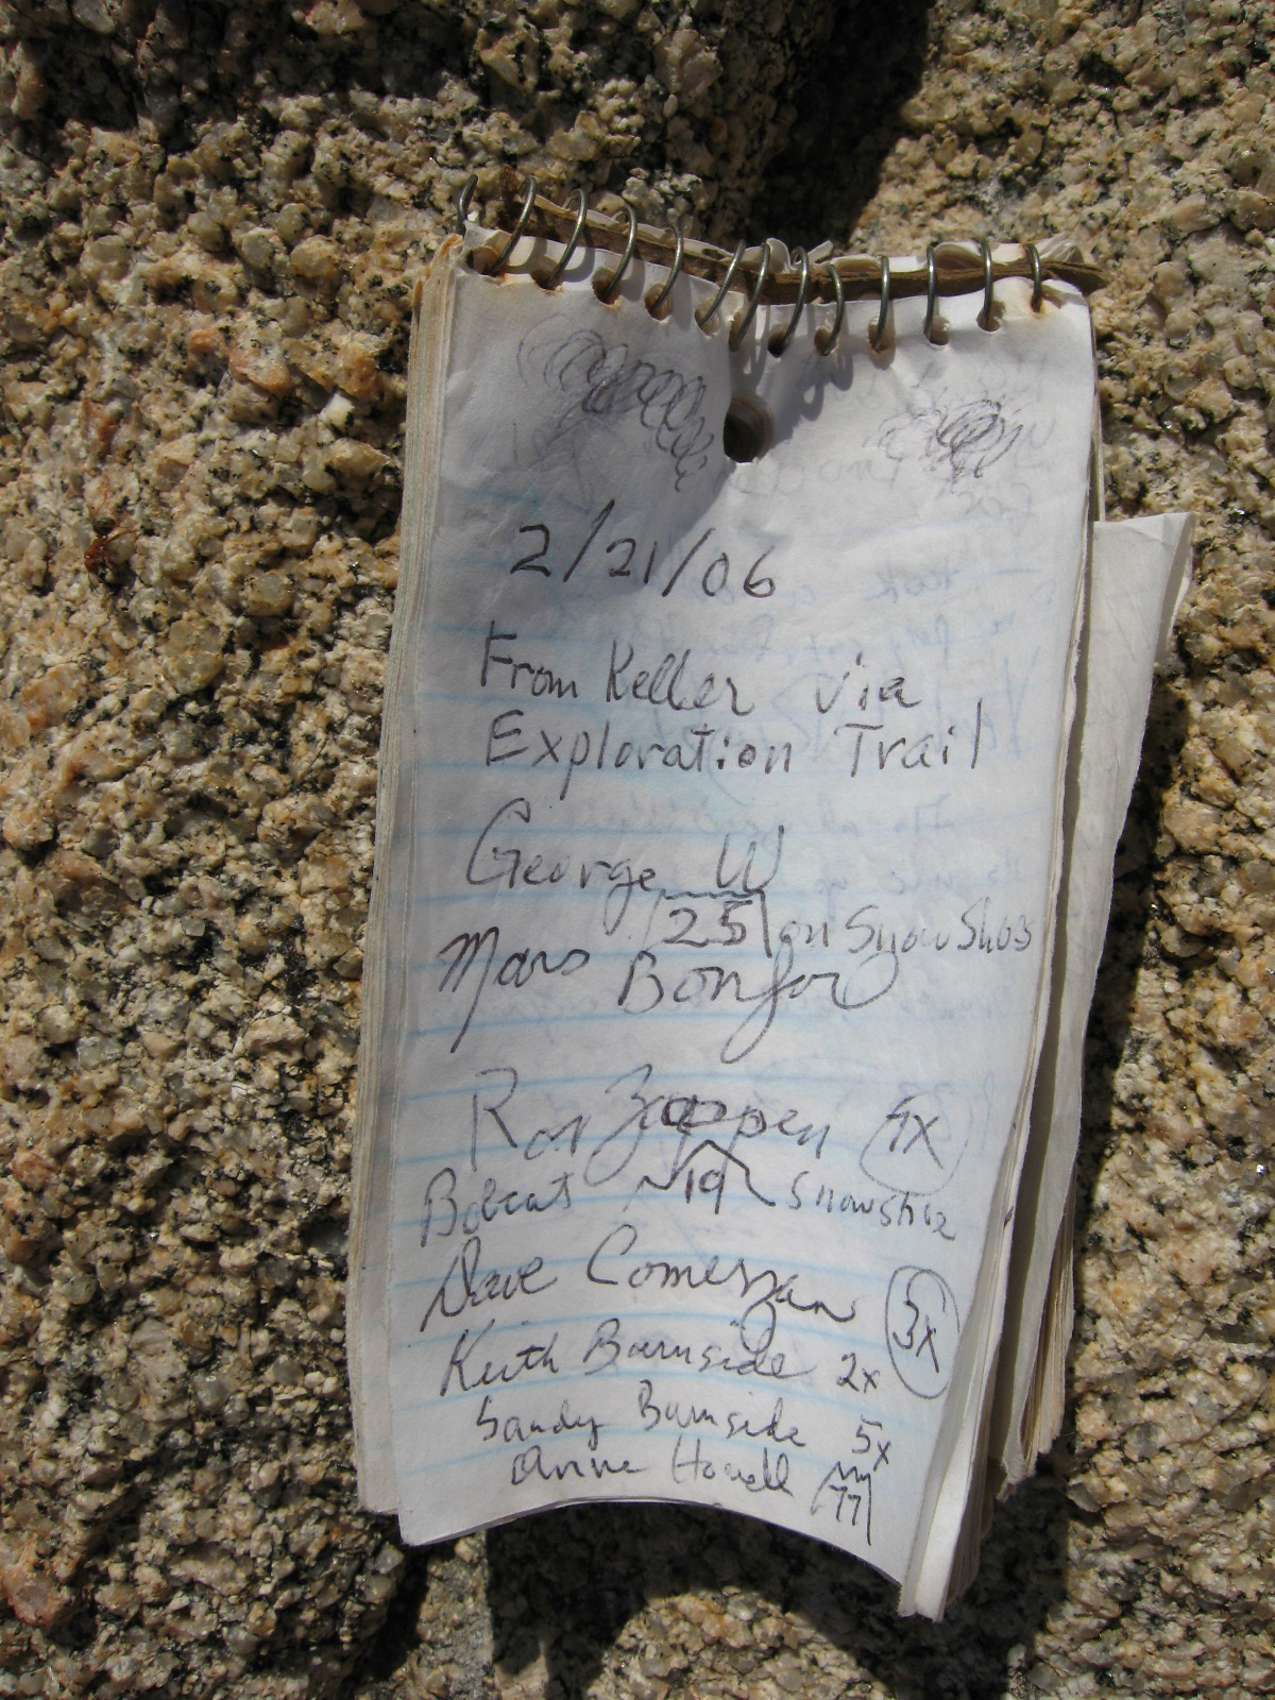 2/21/06
From Keller via
Exploration Trail
George W
25 on Snow Shos
Mars Bonfor
Ron Zappen
Bobcat 19 Snowshoe
Dave Comerzan 3x
Keith Burnside 2x
Sandy Burnside 5x
Anne Howell 77